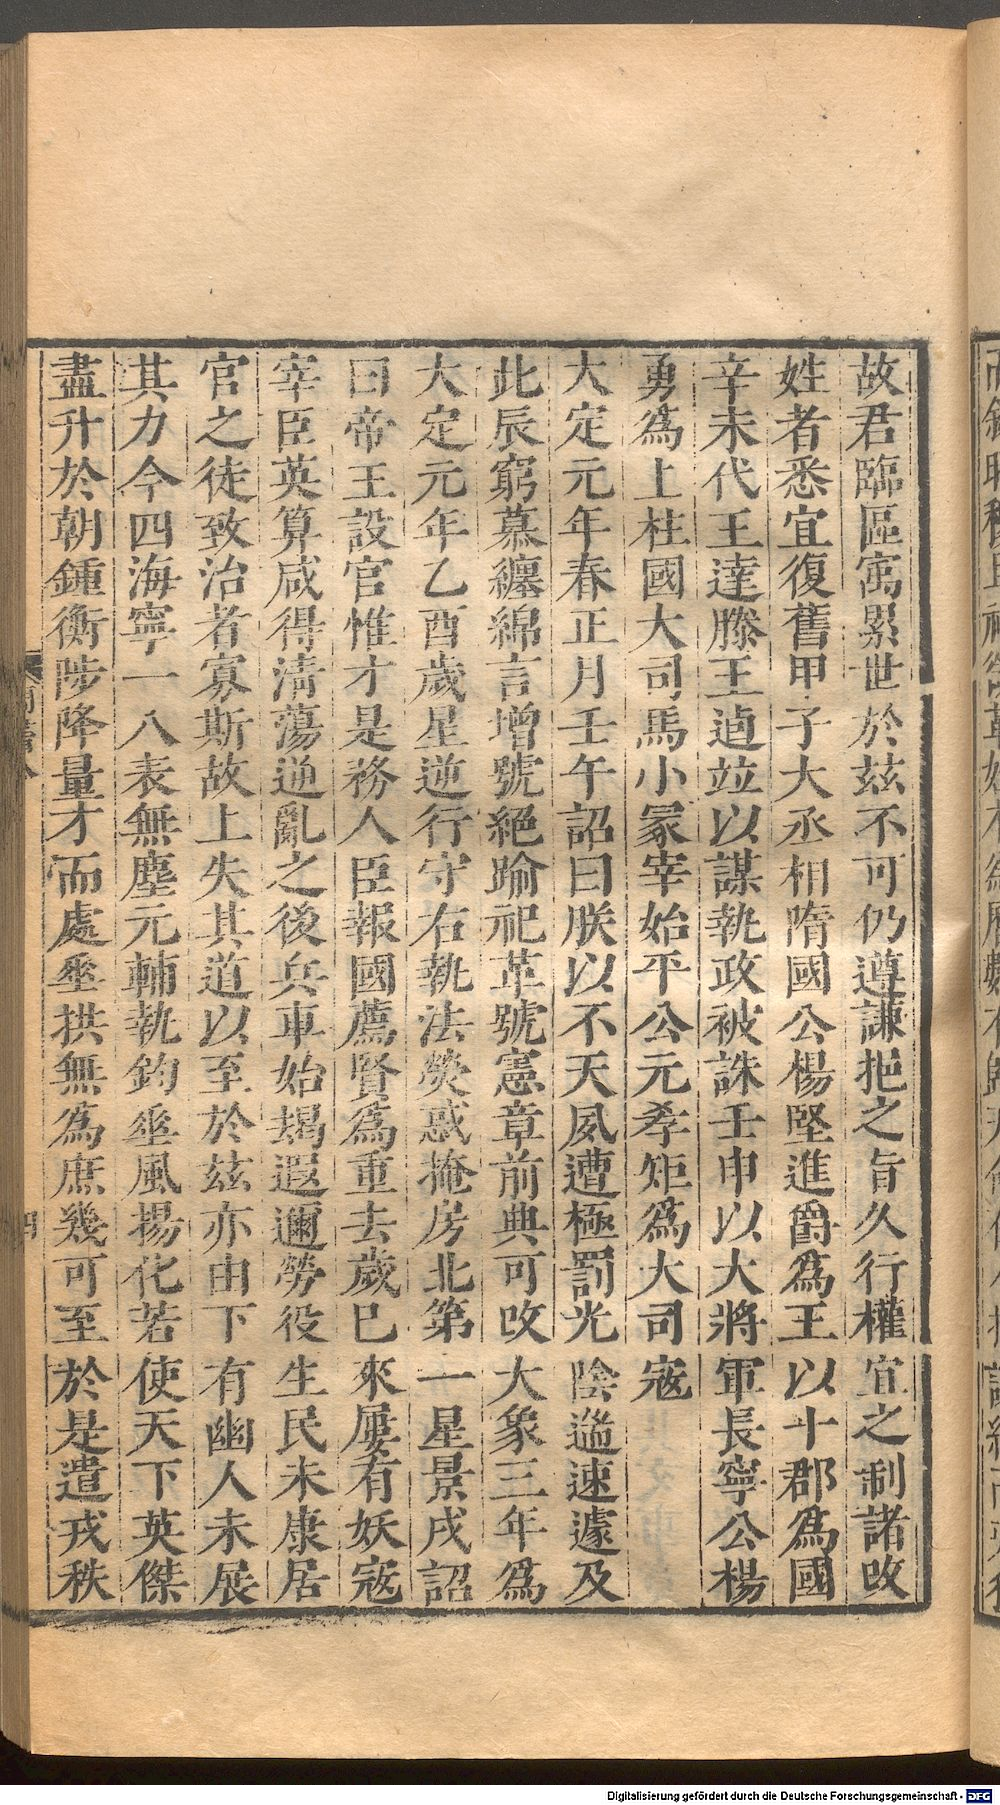 故君臨區㝢累世於茲不可仍遵謙挹之旨久行權宜之制諸改
姓者悉宜復舊甲子大丞相隋國公楊堅進爵爲王以十郡爲國
辛未代王達滕王逌竝以謀執政被誅壬申以大將軍長寧公楊
勇爲上柱國大司馬小冢宰始平公元孝矩爲大司寇
大定元年春正月壬午詔曰朕以不天夙遭極罰光陰遄速遽及
此辰窮慕纏綿言增號絕踰祀革號憲章前典可改大象三年爲
大定元年乙酉歲星逆行守右執法熒惑掩房北第一星景戌詔
曰帝王設官惟才是務人臣報國薦賢爲重去歲巳來屢有妖寇
宰臣英算咸得清蕩逆亂之後兵車始朅遐邇勞役生民未康居
官之徒致治者寡斯故上失其道以至於茲亦由下有幽人未展
其力今四海寧一八表無塵元輔執鈞垂風揚化若使天下英傑
盡升於朝鍾衡陟降量才而處垂拱無爲庶幾可至於是遣戎秩
四
Digitalisierung gefördert durch die Deutsche Forschungsgemeinschaft - DFG